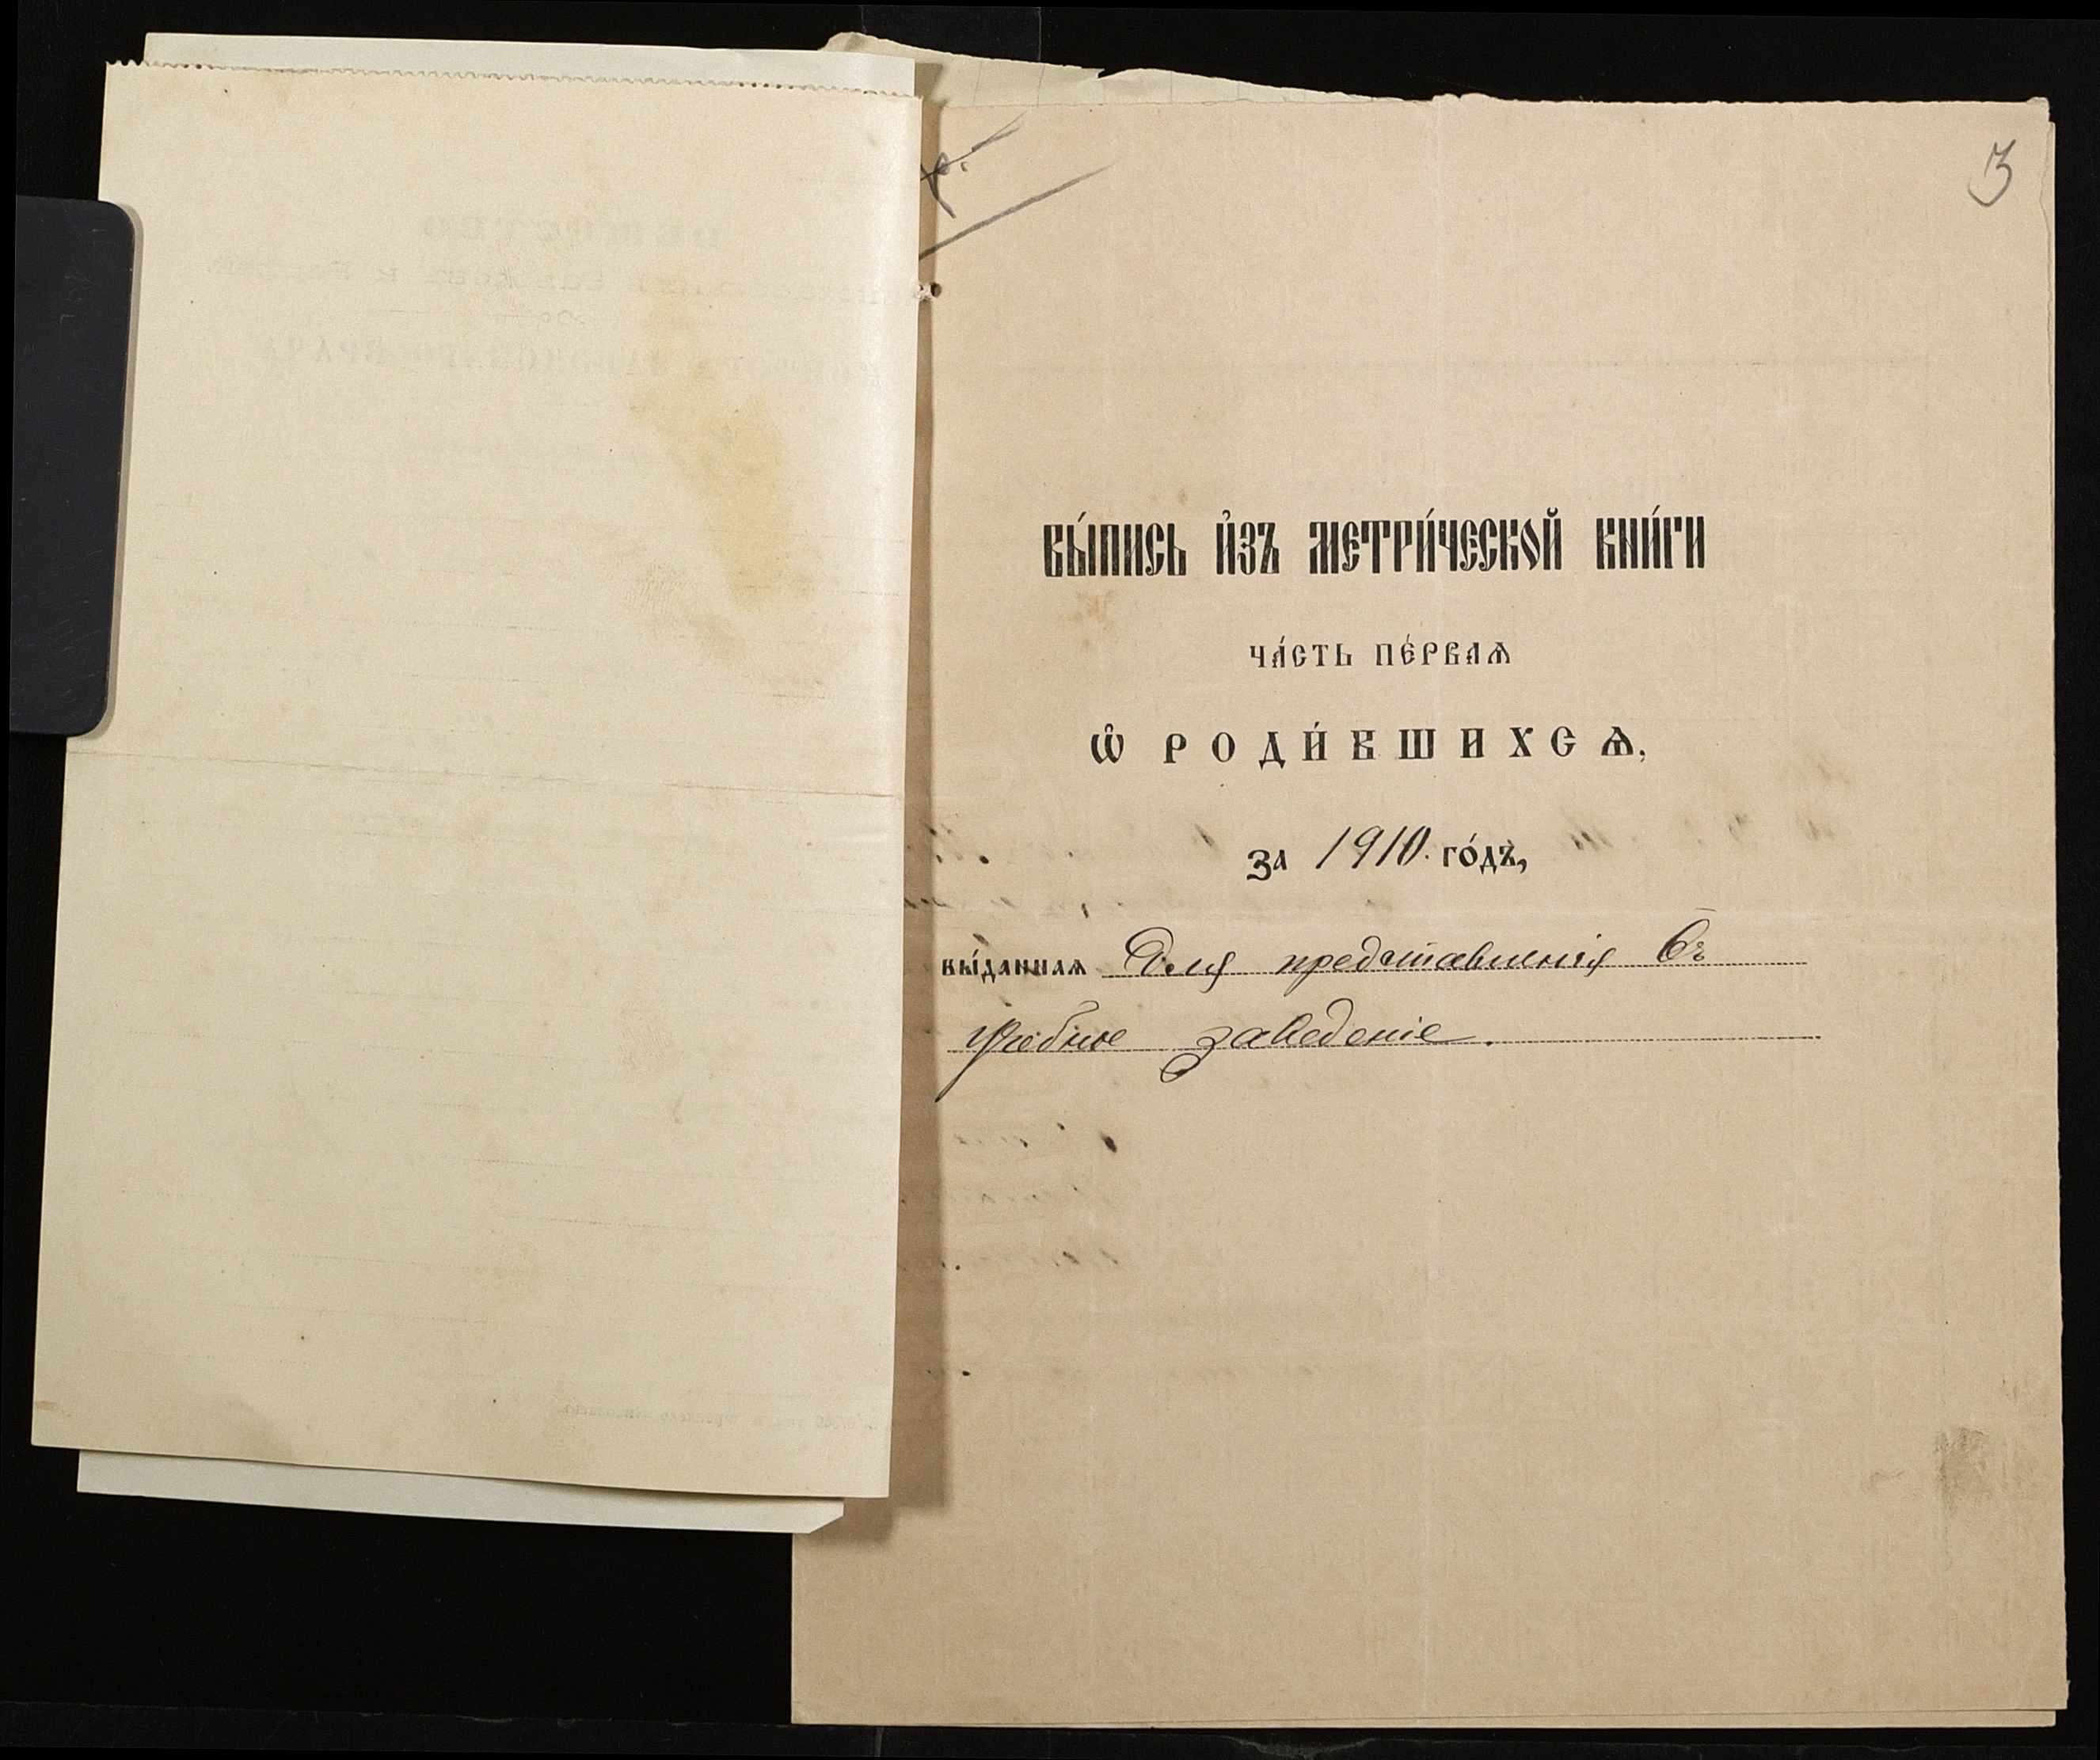 3
вы́пись и҆зъ метри́ческой кни́ги
ча́сть пе́рваѧ
ѡ҆ роди́вшихсѧ,
за 1910. го́дъ,
вы́даннаѧ Для представленія въ
учебное заведеніе.